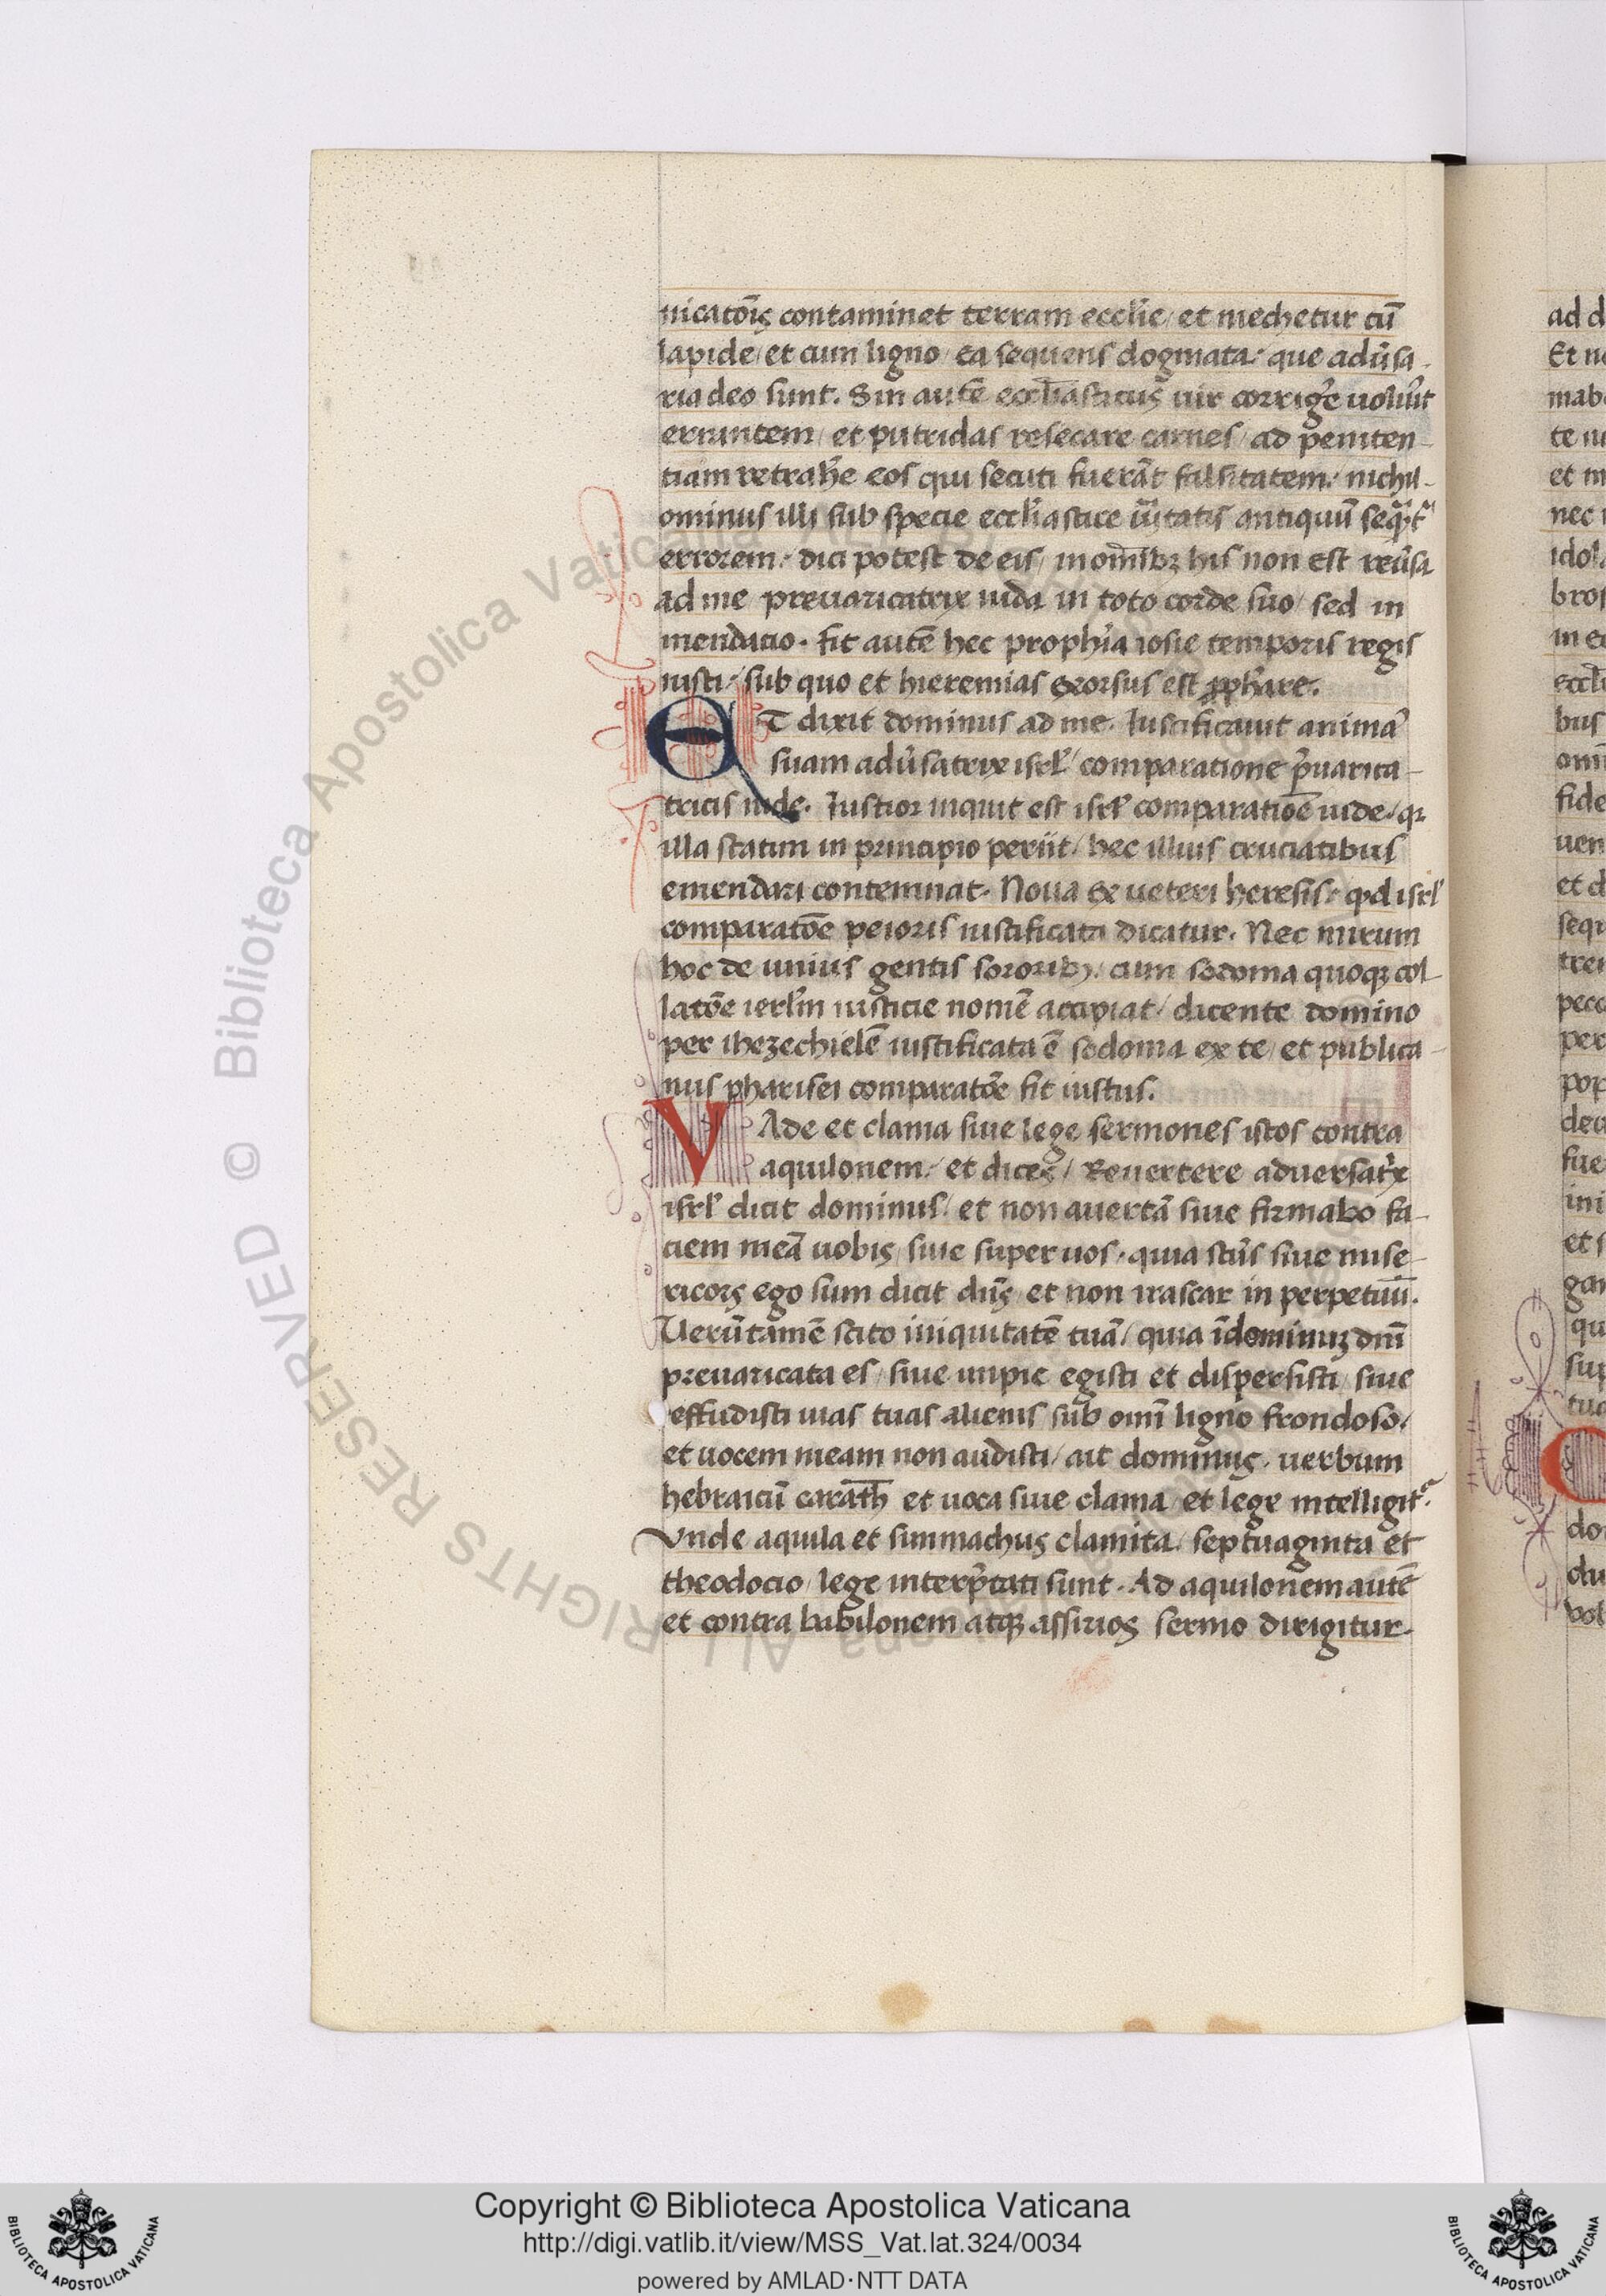 nicatōis contaminet terram eccl'ie / et mechetur cū
lapide / et cum ligno / ea sequens dogmata: que adūsa-
ria deo sunt. Sin autē eccl'iasticus uir corrig'e uolu'it
errantem / et putridas resecare carnes / ad peniten-
tiam retrah'e eos qui secuti fuerāt falsitatem: nichil-
ominus illi sub specie eccl'iastice ūitatis antiquū seq̄nt̄
errorem: dici potest de eis / in om̄ibꝫ his non est reūsa
ad me preuaricatrix iuda in toto corde suo / sed in
mendacio. fit autē hec proph'ia iosie temporis regis
iusti: sub quo et hieremias exorsus est ꝓph'are.
ET dixit dominus ad me. Iustificauit animā
suam adūsatrix isrl' / comparatione p̄uarica-
tricis iude. Iustior inquit est isrl' comparatiōe iude / qꝛ
illa statim in principio periit / hec illius cruciatibus
emendari contemnat. Noua ex ueteri heresis: qd isrl'
comparatōe peioris iustificata dicatur. Nec mirum
hoc de unius gentis sororibꝫ: cum sodoma quoqꝫ col-
latōe ierl'm iusticie nomē accipiat / dicente domino
per ihezechielē iustificata ē sodoma ex te / et publica-
nus pharisei comparatōe fit iustus.
VAde et clama siue lege sermones istos contra
aquilonem: et dices / Reuertere aduersat'x
isrl' dicit dominus / et non auertā siue firmabo fa-
ciem meā uobis / siue super uos. quia scūs siue mise-
ricors ego sum dicit dn̄s / et non irascar in perpetuū.
Uerūtamē scito iniquitatē tuā / quia ī dominuꝫ dm̄
preuaricata es / siue impie egisti et dispersisti / siue
effudisti uias tuas alienis sub omī ligno frondoso /
et uocem meam non audisti / ait dominus. uerbum
hebraicū carath et uoca siue clama / et lege intelligit'.
Unde aquila et simmachus clamita / septuaginta et
theodocio / lege interp̄tati sunt. Ad aquilonem autē
et contra babilonem atqꝫ assirios sermo dirigitur.
ad d
Et no
te u
et m
nec
idol
bros
in e
bus
fide
uen
et d
sequ
pecc
per
pop
fue
ini
et s
gar
qu
sup
tua
C
du
Biblioteca Apostolica Vaticana
ALL RIGHTS RESERVED ©
Copyright © Biblioteca Apostolica Vaticana
http://digi.vatlib.it/view/MSS_Vat.lat.324/0034
powered by AMLAD·NTT DATA
BIBLIOTECA APOSTOLICA VATICANA
BIBLIOTECA APOSTOLICA VATICANA